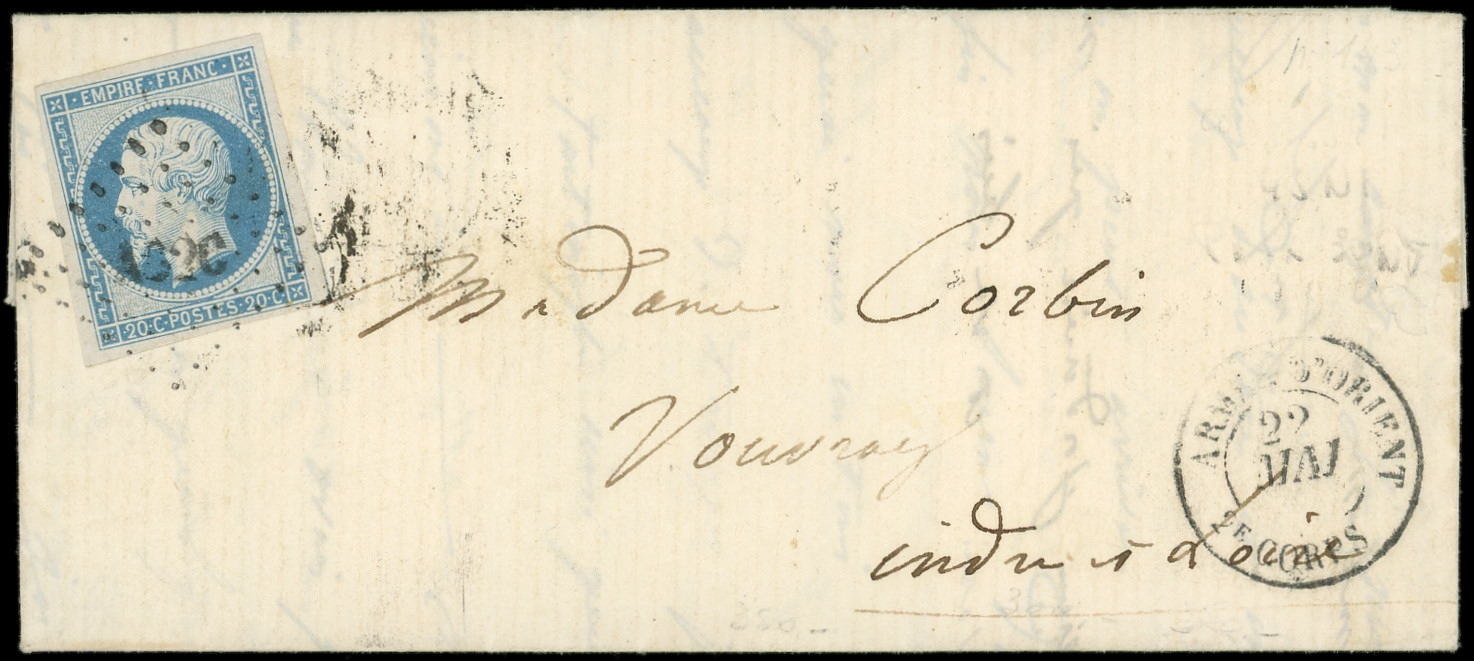 EMPIRE · FRANC
20·C·POSTES·20·C
Madame Corbin
Vouvray
indre et Loire
ARMÉE D'ORIENT
22
MAI
2E CORPS